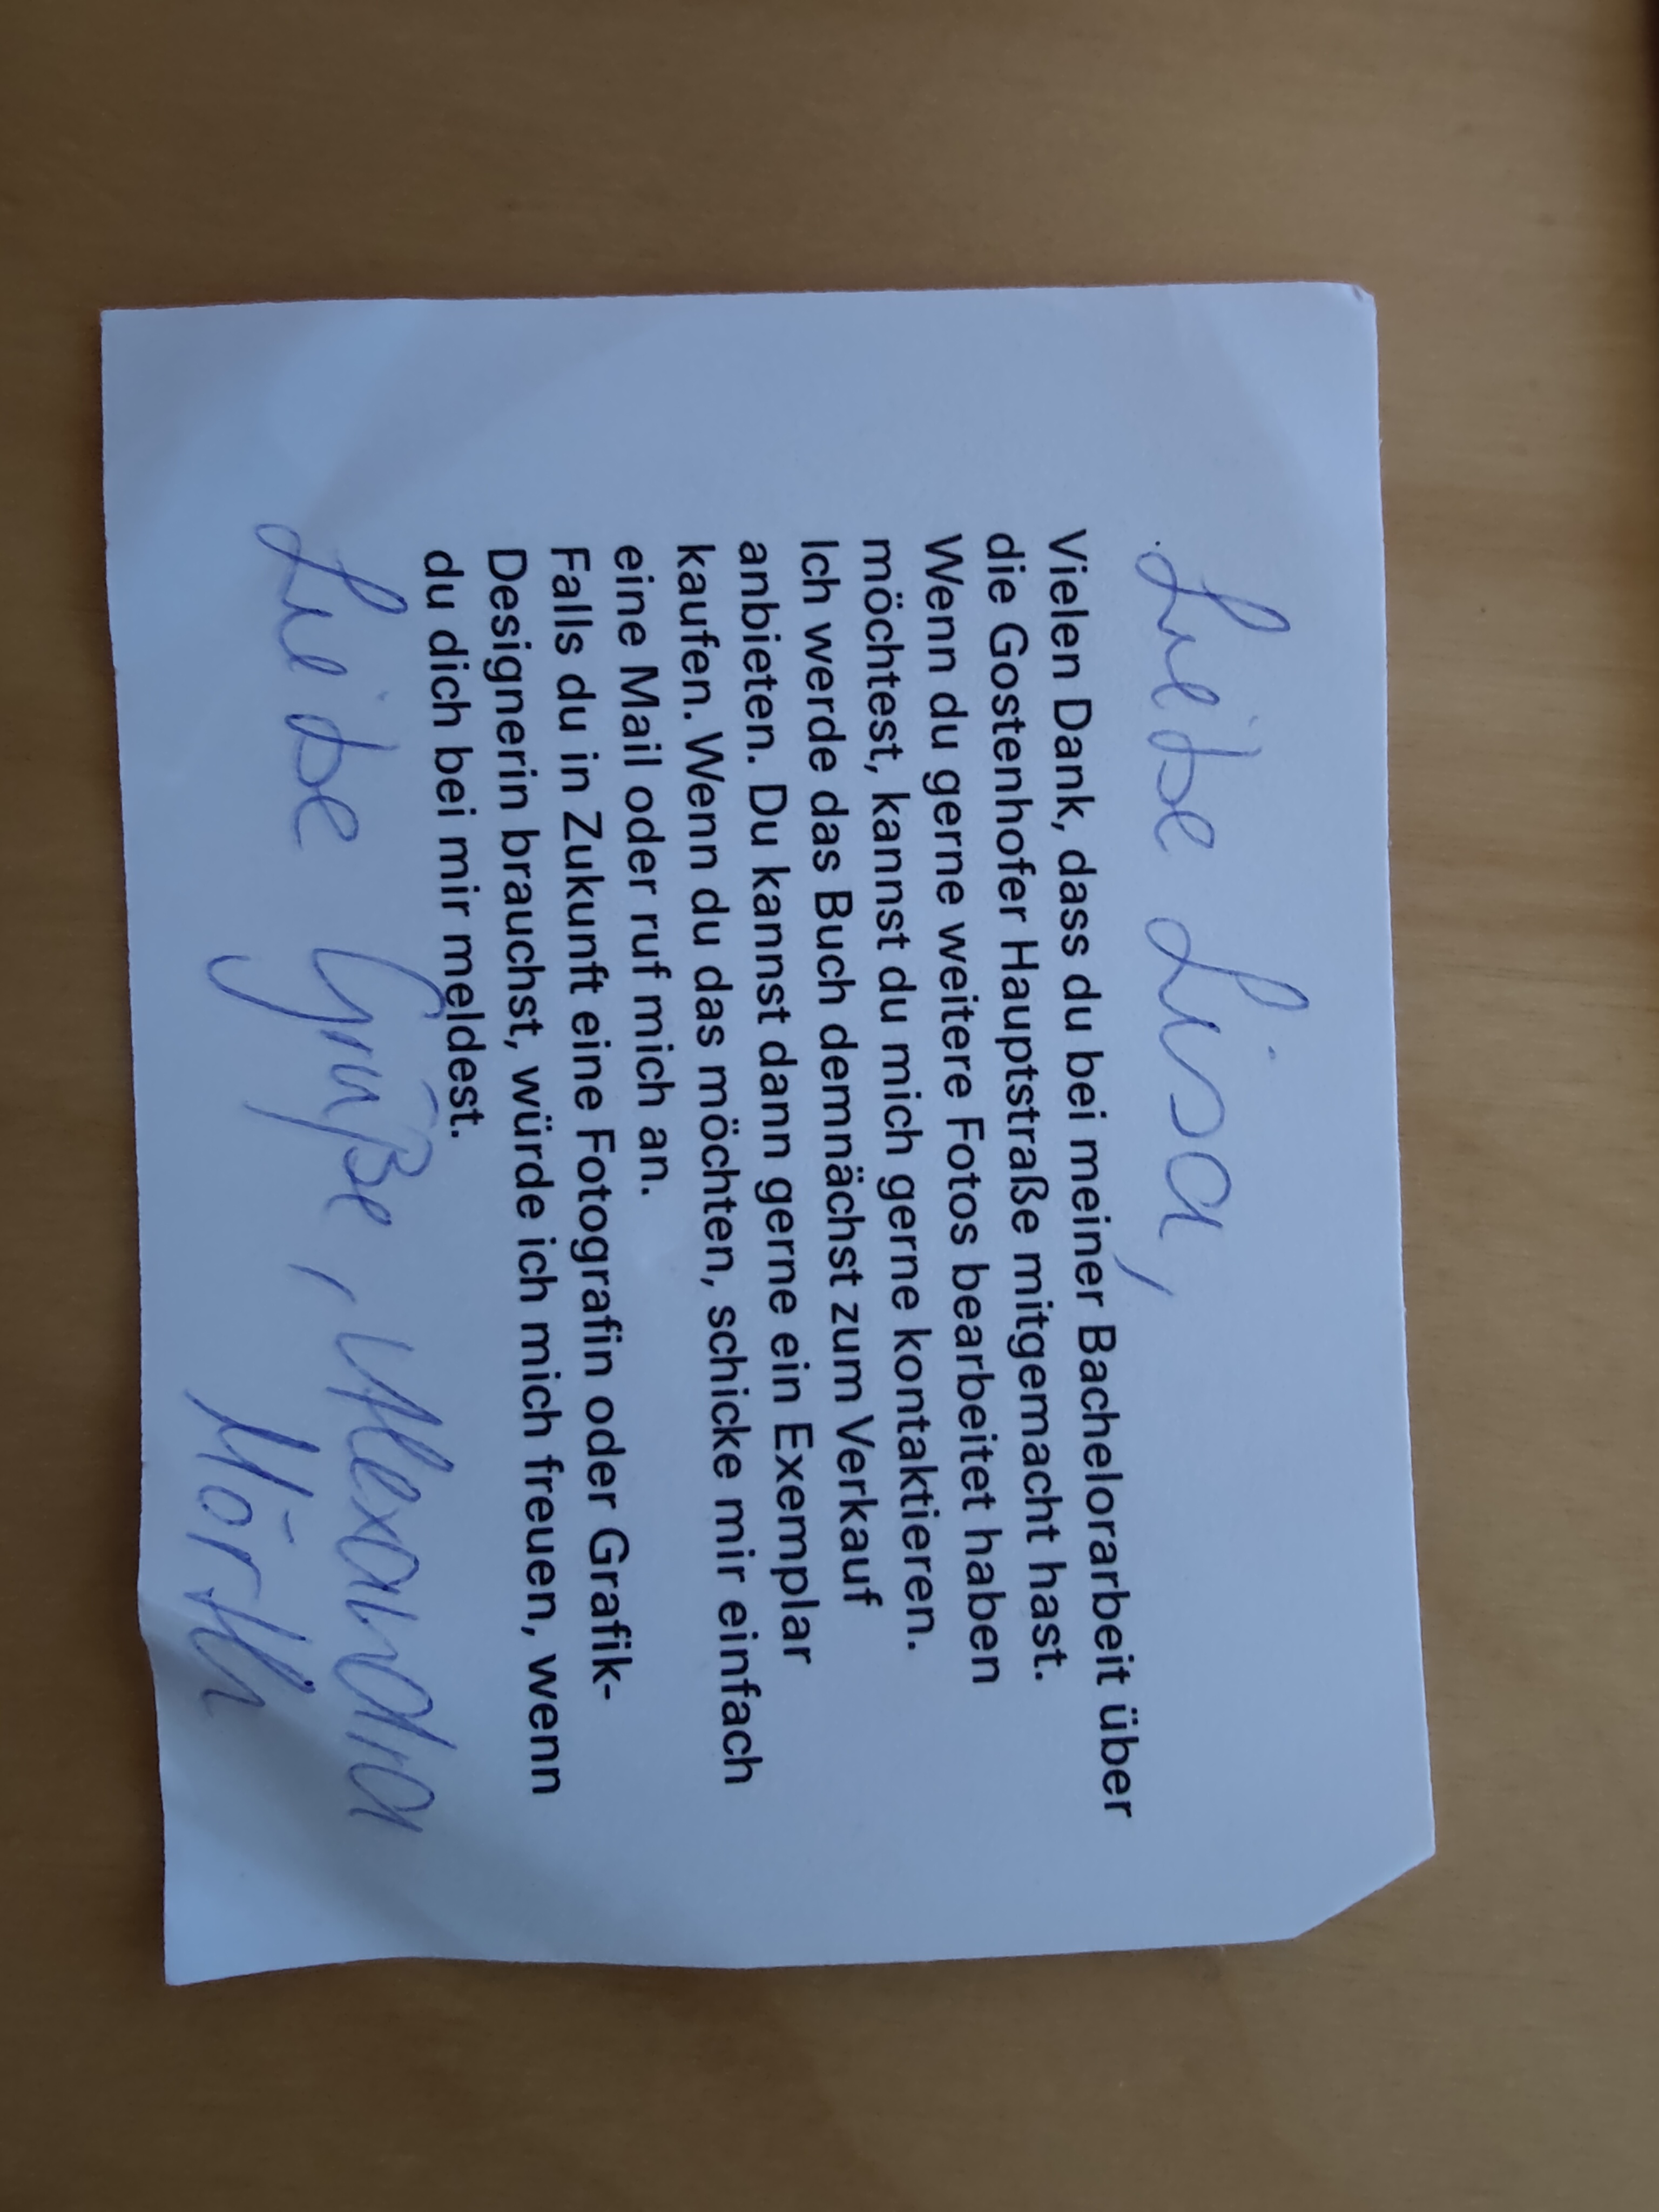 Liebe Lisa,
Vielen Dank, dass du bei meiner Bachelorarbeit über
die Gostenhofer Hauptstraße mitgemacht hast.
Wenn du gerne weitere Fotos bearbeitet haben
möchtest, kannst du mich gerne kontaktieren.
Ich werde das Buch demnächst zum Verkauf
anbieten. Du kannst dann gerne ein Exemplar
kaufen. Wenn du das möchten, schicke mir einfach
eine Mail oder ruf mich an.
Falls du in Zukunft eine Fotografin oder Grafik-
Designerin brauchst, würde ich mich freuen, wenn
du dich bei mir meldest.
Liebe Grüße, Alexandra
Mörtl